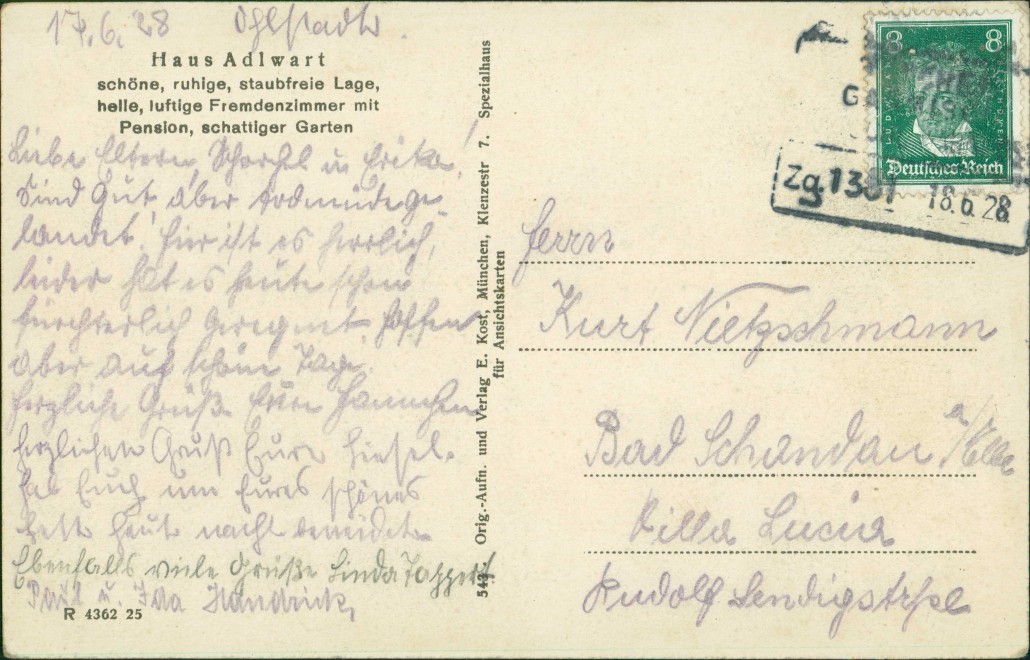 17.6.28 Ohlstadt.
Haus Adlwart
schöne, ruhige, staubfreie Lage,
helle, luftige Fremdenzimmer mit
Pension, schattiger Garten
Liebe Eltern, Schorschl u. Erika!
Sind gut aber todmüde ge-
landet. Hier ist es herrlich,
leider hat es heute schon
fürchterlich geregnet. Hoffen
aber auf schöne Tage.
Herzliche Grüße Eure Hannchen
Herzlichen Gruß Eure Liesel.
Hab Euch um Eures schönes
Bett heut nacht beneidet.
Ebenfalls viele Grüße Linda Tappert
Paul u. Ida Handrick,
R 4362 25
543 Orig.-Aufn. und Verlag E. Kost, München, Klenzestr 7. Spezialhaus
für Ansichtskarten
8 8
Deutsches Reich
Zg. 1381 18.6.28
Herrn
Kurt Nietzschmann
Bad Schandau a/Elbe
Villa Lucia
Rudolf Sendigstraße